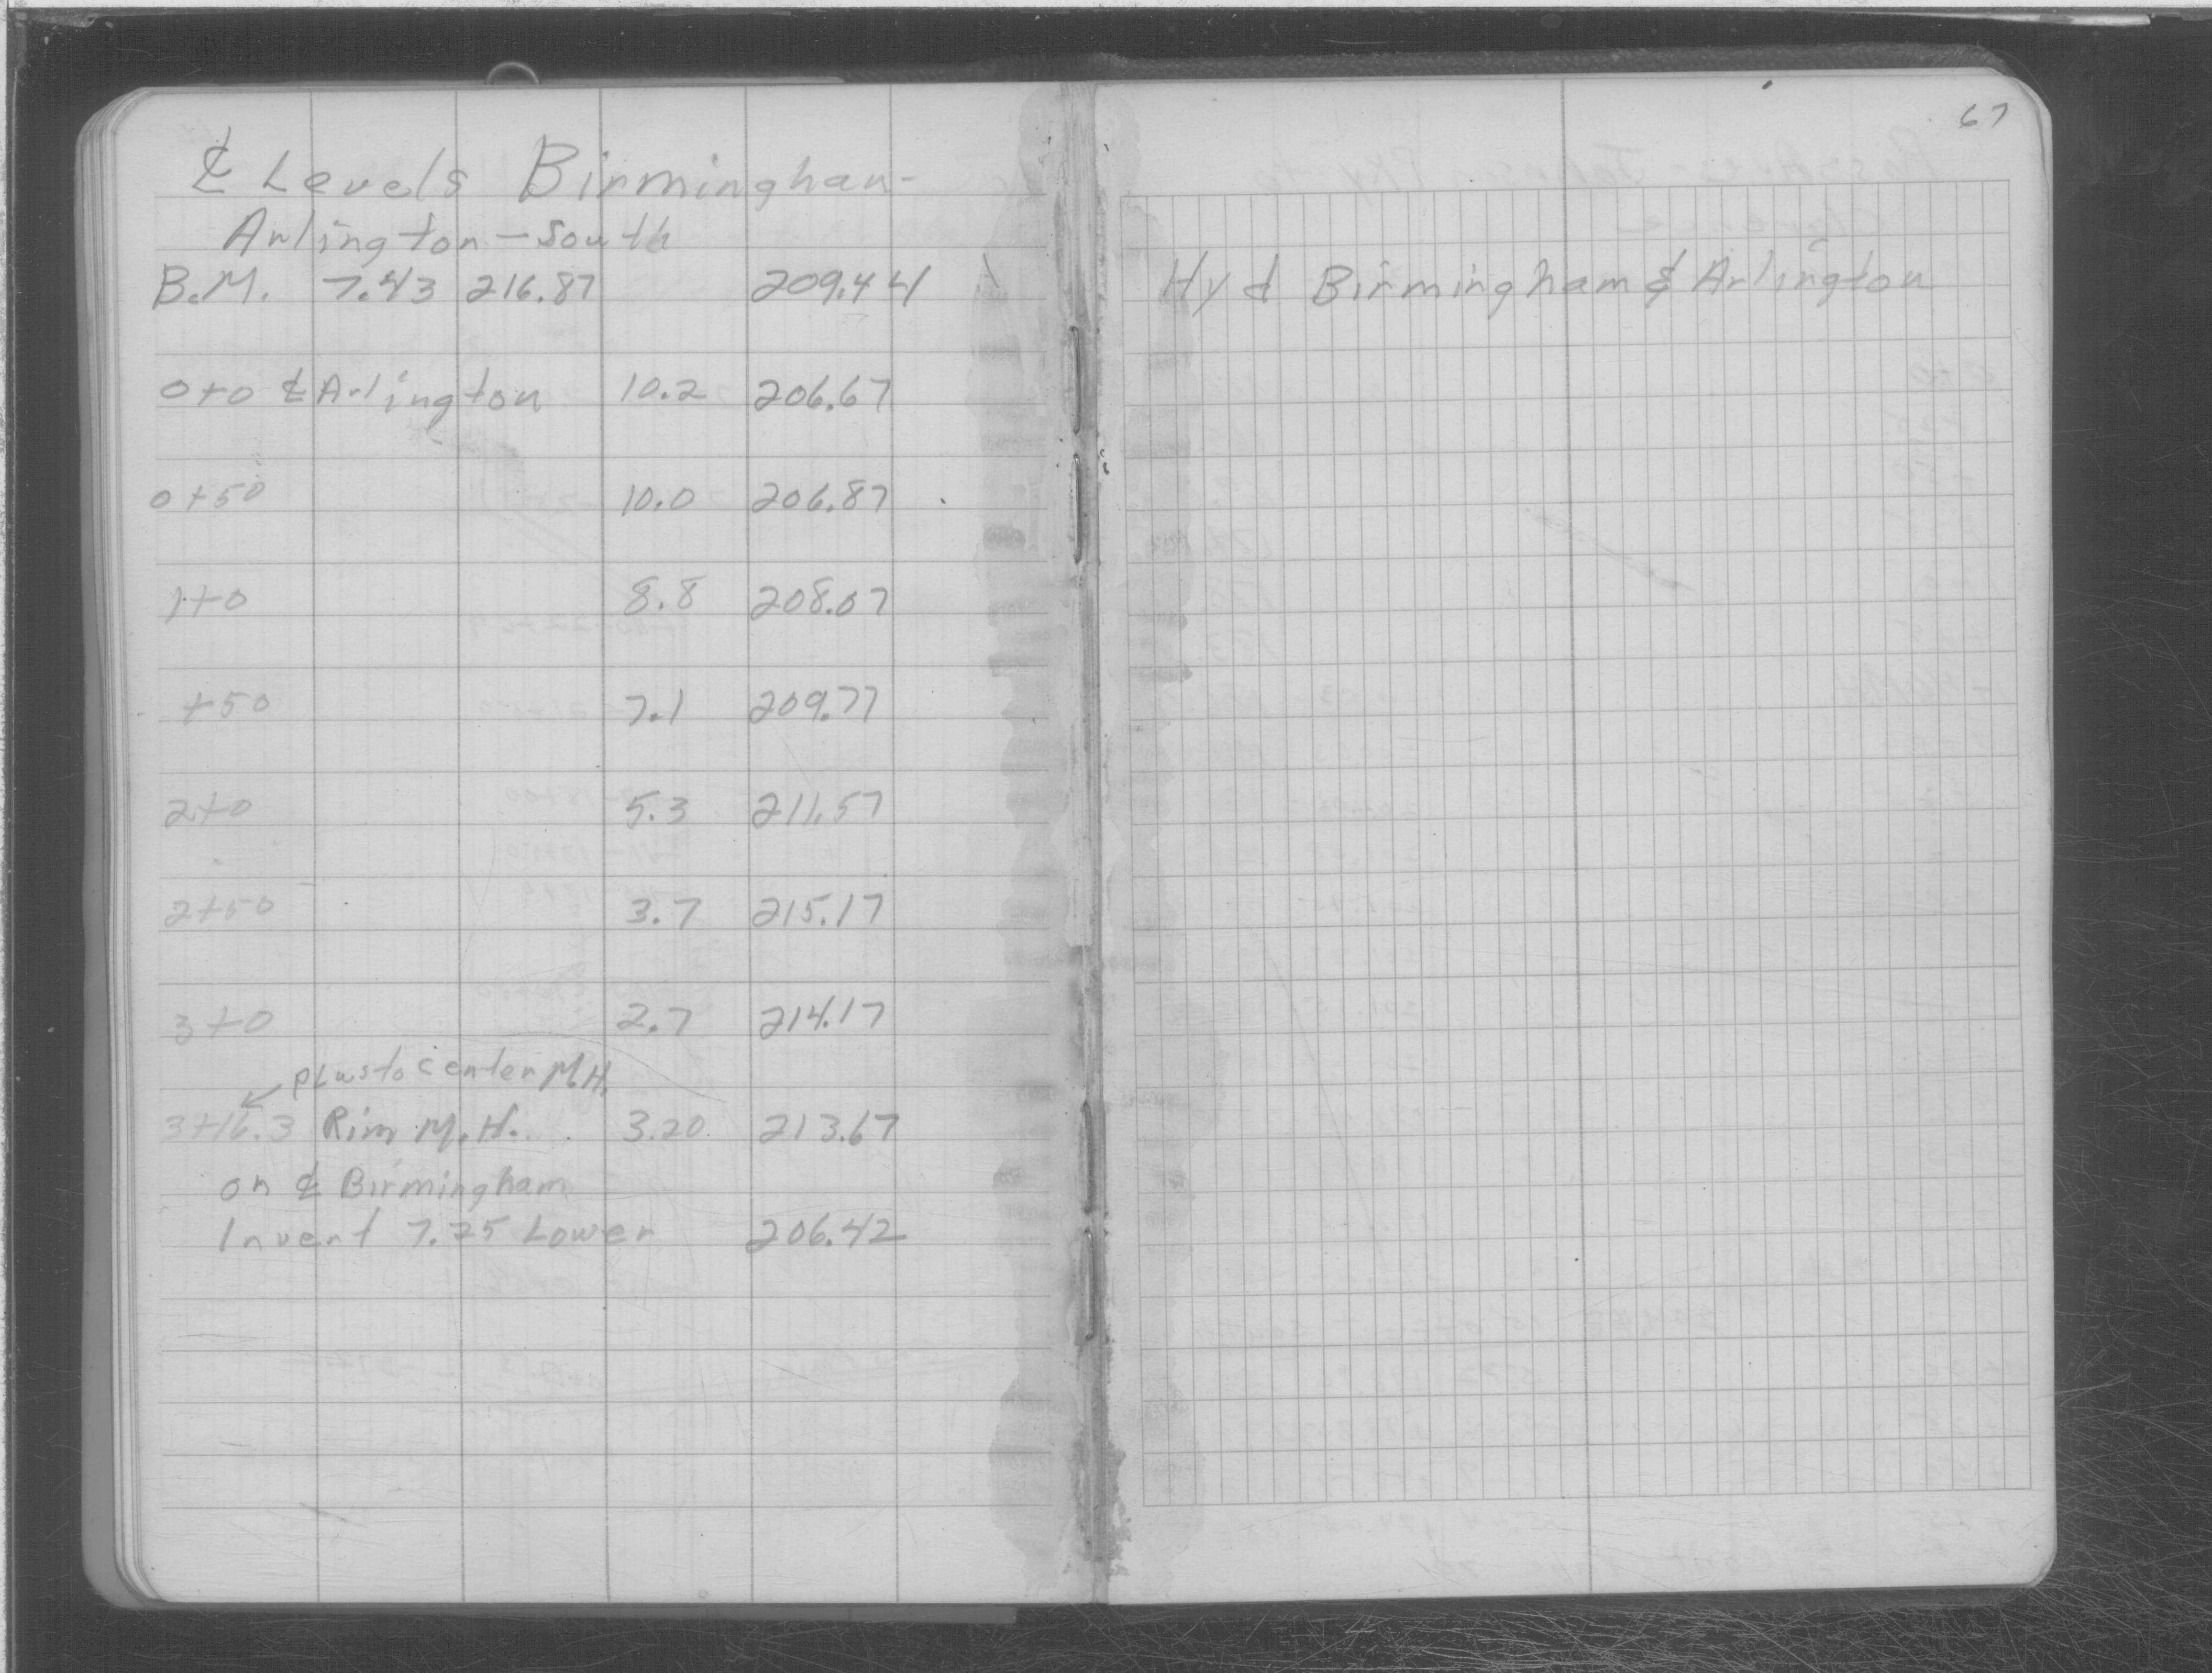 ℄ Levels Birmingham-
Arlington - South
B.M. 7.43 216.87 209.44
0+0 ℄ Arlington 10.2 206.67
0+50 10.0 206.87
1+0 8.8 208.07
+50 7.1 209.77
2+0 5.3 211.57
2+50 3.7 215.17
3+0 2.7 214.17
plus to center M.H.
3+16.3 Rim M.H. 3.20 213.67
on ℄ Birmingham
Invert 7.25 Lower 206.42
67
Hyd Birmingham & Arlington